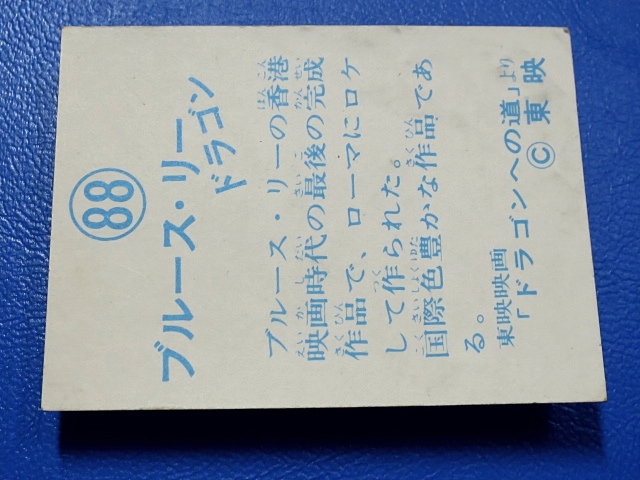 88
ブルース・リー
ドラゴン
ブルース・リーの香港
映画時代の最後の完成
作品で、ローマにロケ
して作られた。
国際色豊かな作品であ
る。
東映映画
「ドラゴンへの道」より
©東映